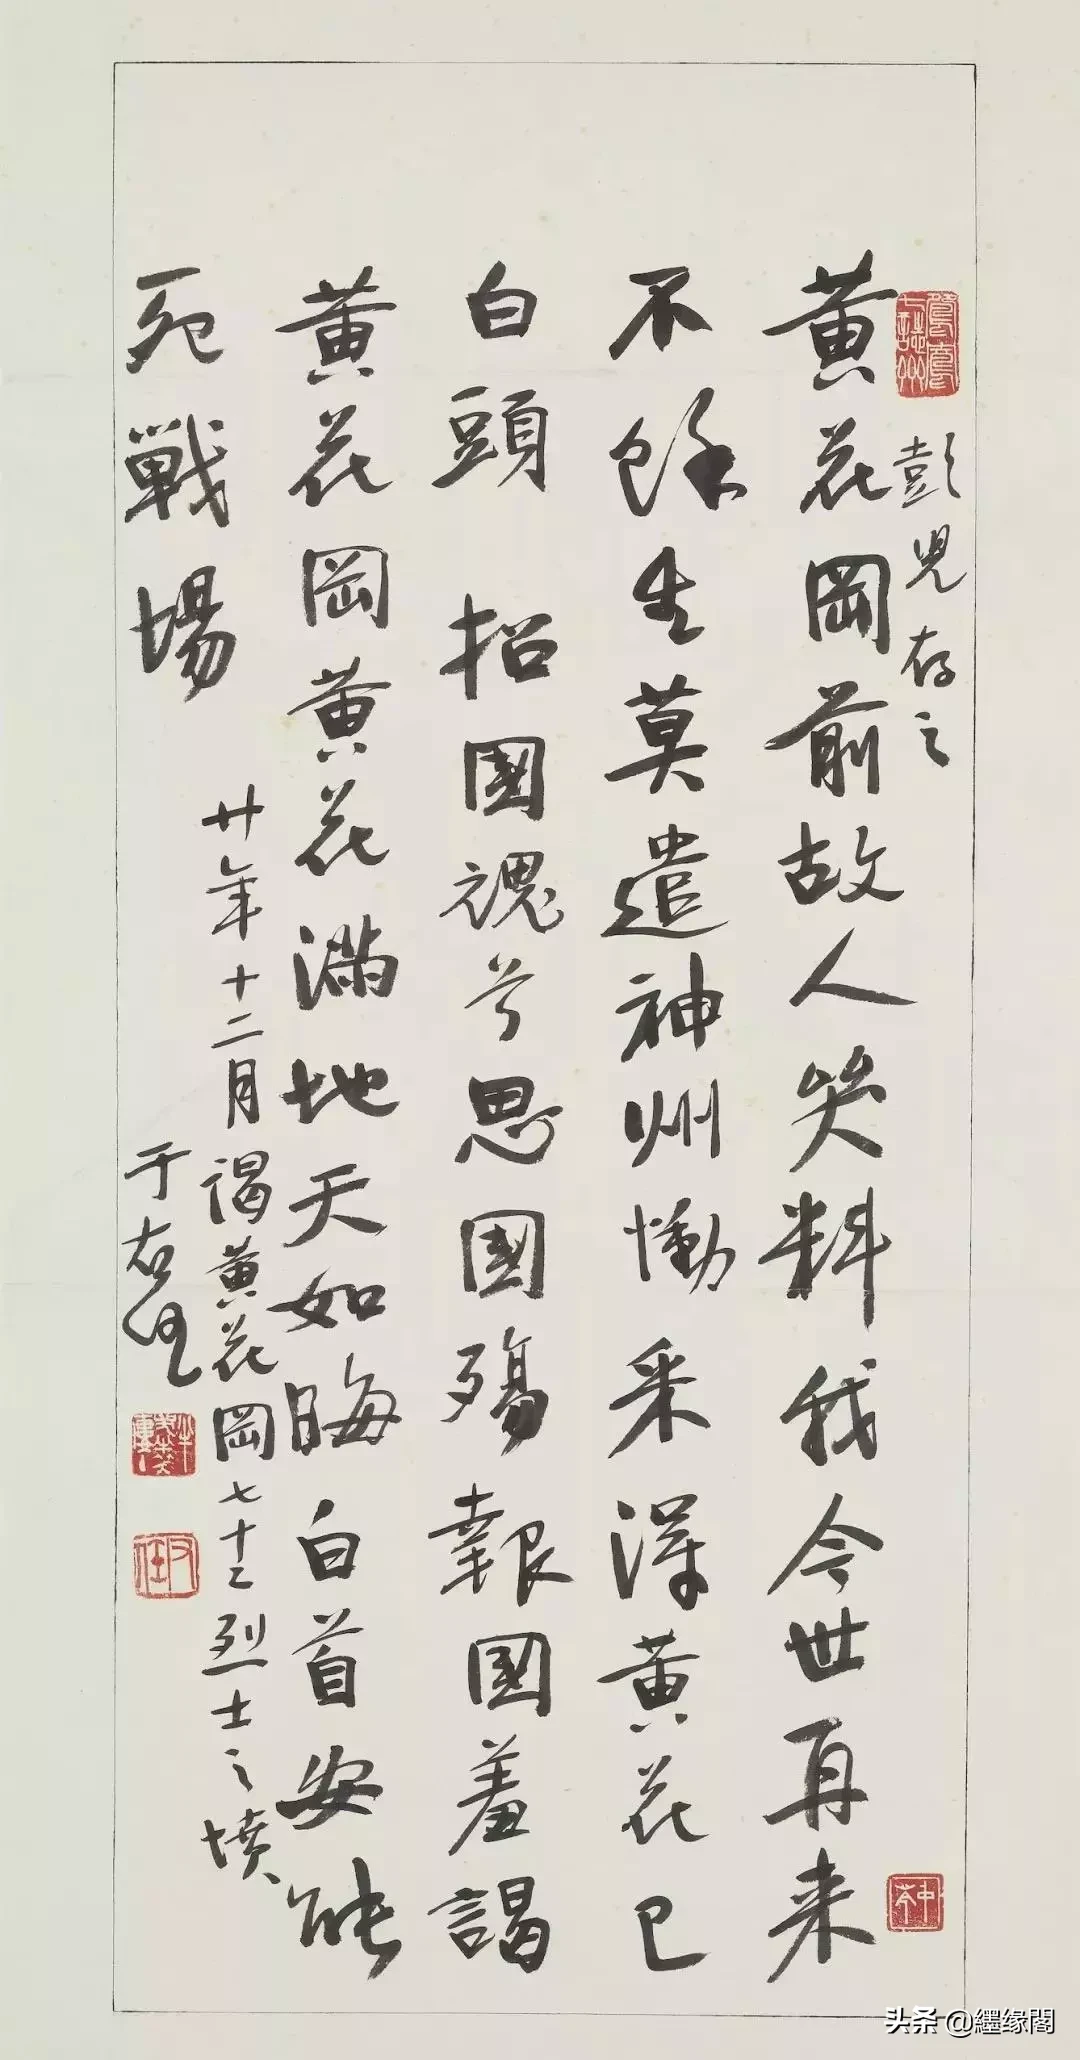 彭兒存之
黄花岡前故人哭料我今世再来
不餘生莫遣神州慟采淂黄花已
白頭 招國魂兮思國殤報國羞謁
黄花岡黄花滿地天如晦白首安能
死戰場
廿年十二月謁黄花岡七十二烈士之墳
于右任
右任
头条 @纆缘閣